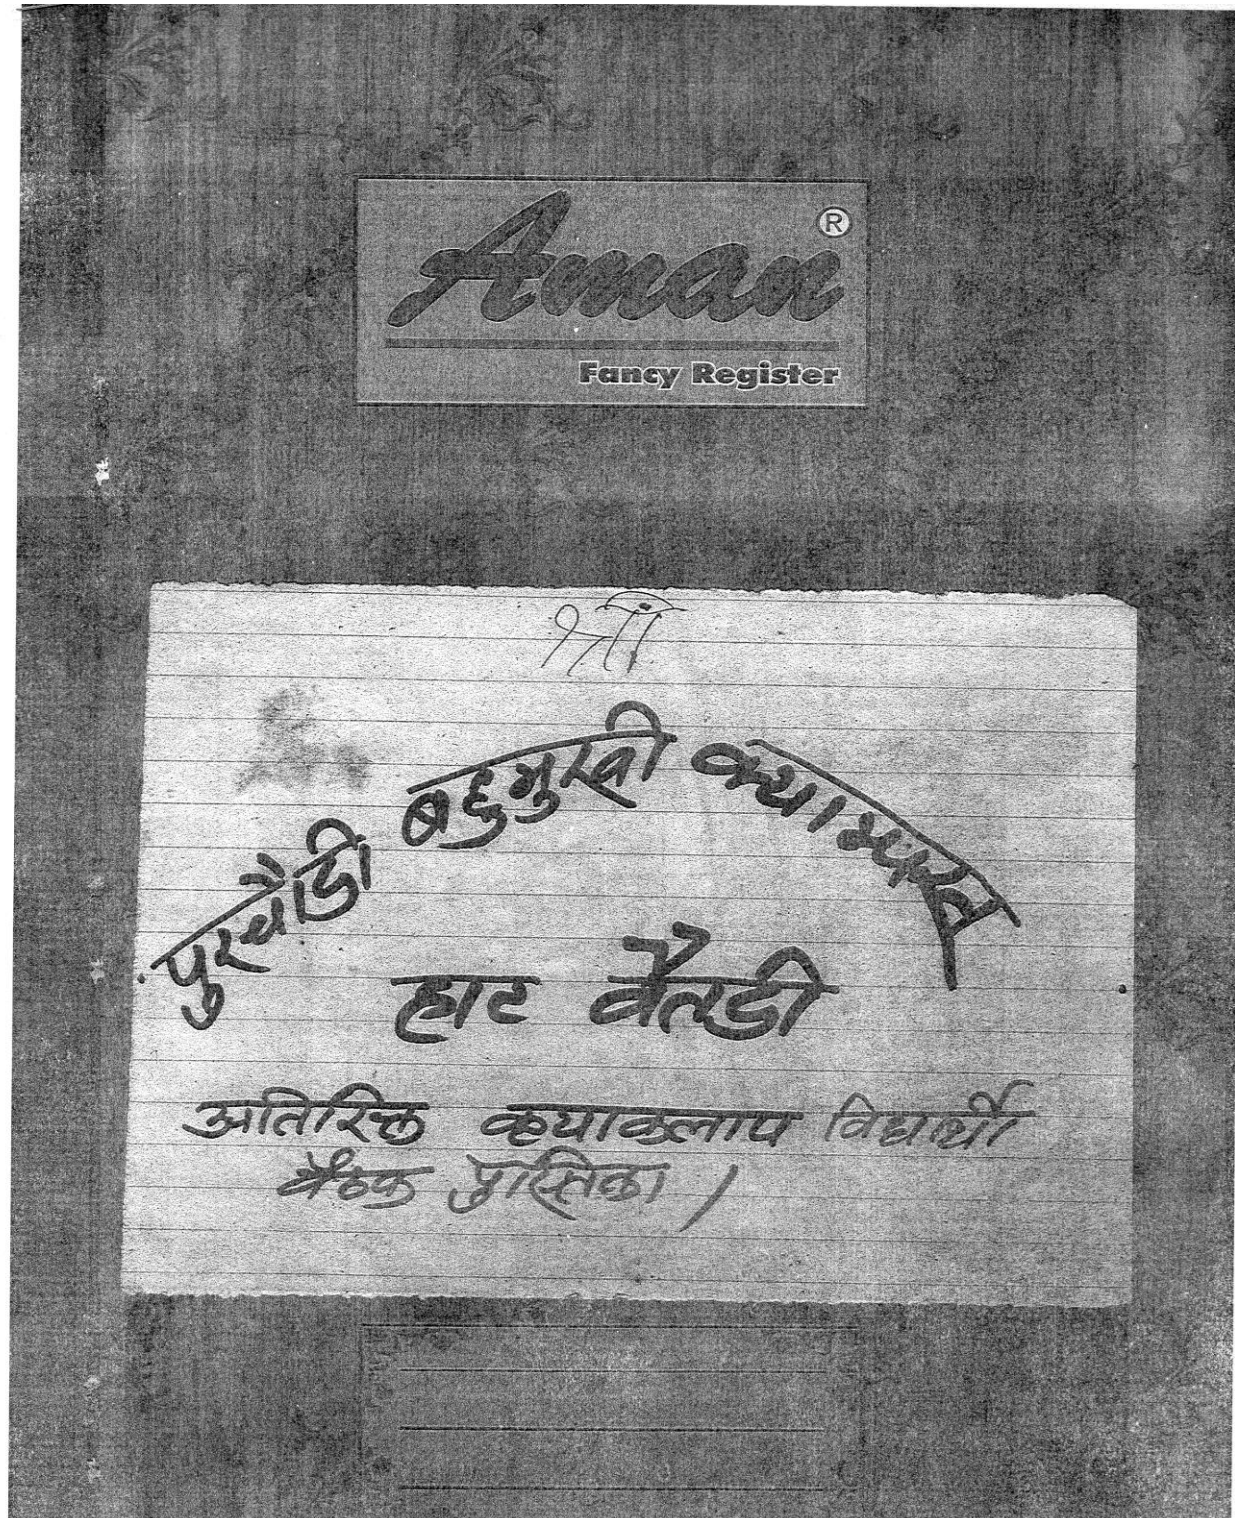 Aman®
Fancy Register
श्री
पुरचौडी बहुमुखी क्याम्पस
हाट बैतडी
अतिरिक्त क्रयाकलाप विद्यार्थी
बैठक पुस्तिका ।